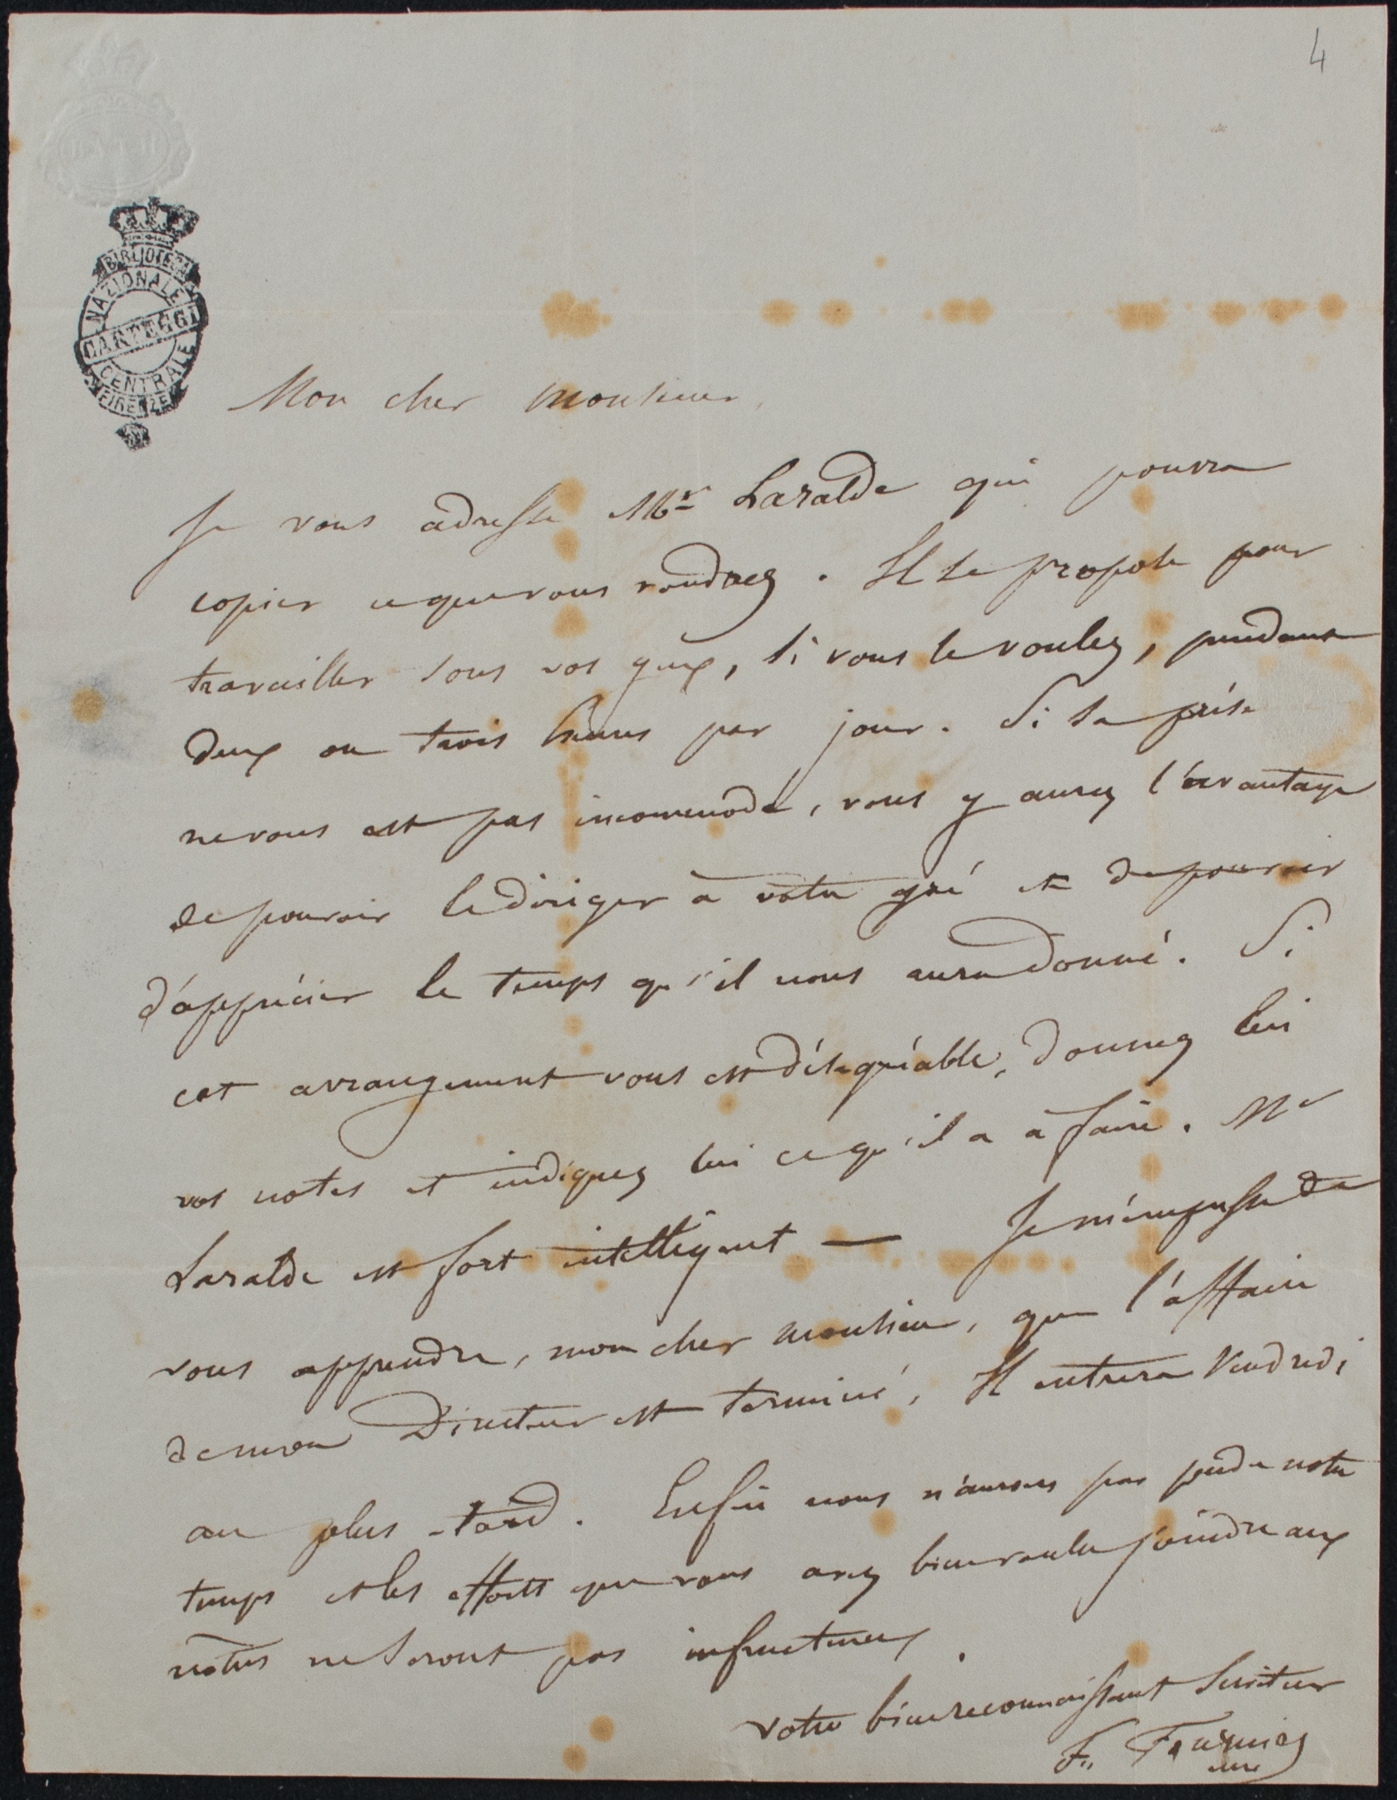 4
BATH
BIBLIOTECA
NAZIONALE
CARTEGGI
CENTRALE
FIRENZE
Mon cher monsieur,
Je vous adresse Mr Laralde qui pourra
copier ce que vous voudrez. Il se propose pour
travailler sous vos yeux, si vous le voulez, pendant
deux ou trois heures par jour. Si sa présce
ne vous est pas incommode, vous y aurez l'avantage
de pouvoir le diriger à votre gré et de pouvoir
d'apprécier le temps qu'il nous aura donné. Si
cet arrangement vous est désagréable, donnez lui
vos notes et indiquez lui ce qu'il a à faire. Mr
Laralde est fort intelligent — Je m'empresse de
vous apprendre, mon cher monsieur, que l'affaire
de mon Directeur est terminé, Il entrera Vendredi
au plus tard. Enfin nous n'aurons pas perdu notre
temps et les efforts que vous avez bien voulu joindre aux
nôtres ne seront pas infructueux.
votre bien reconnaissant serviteur
F. Fournier